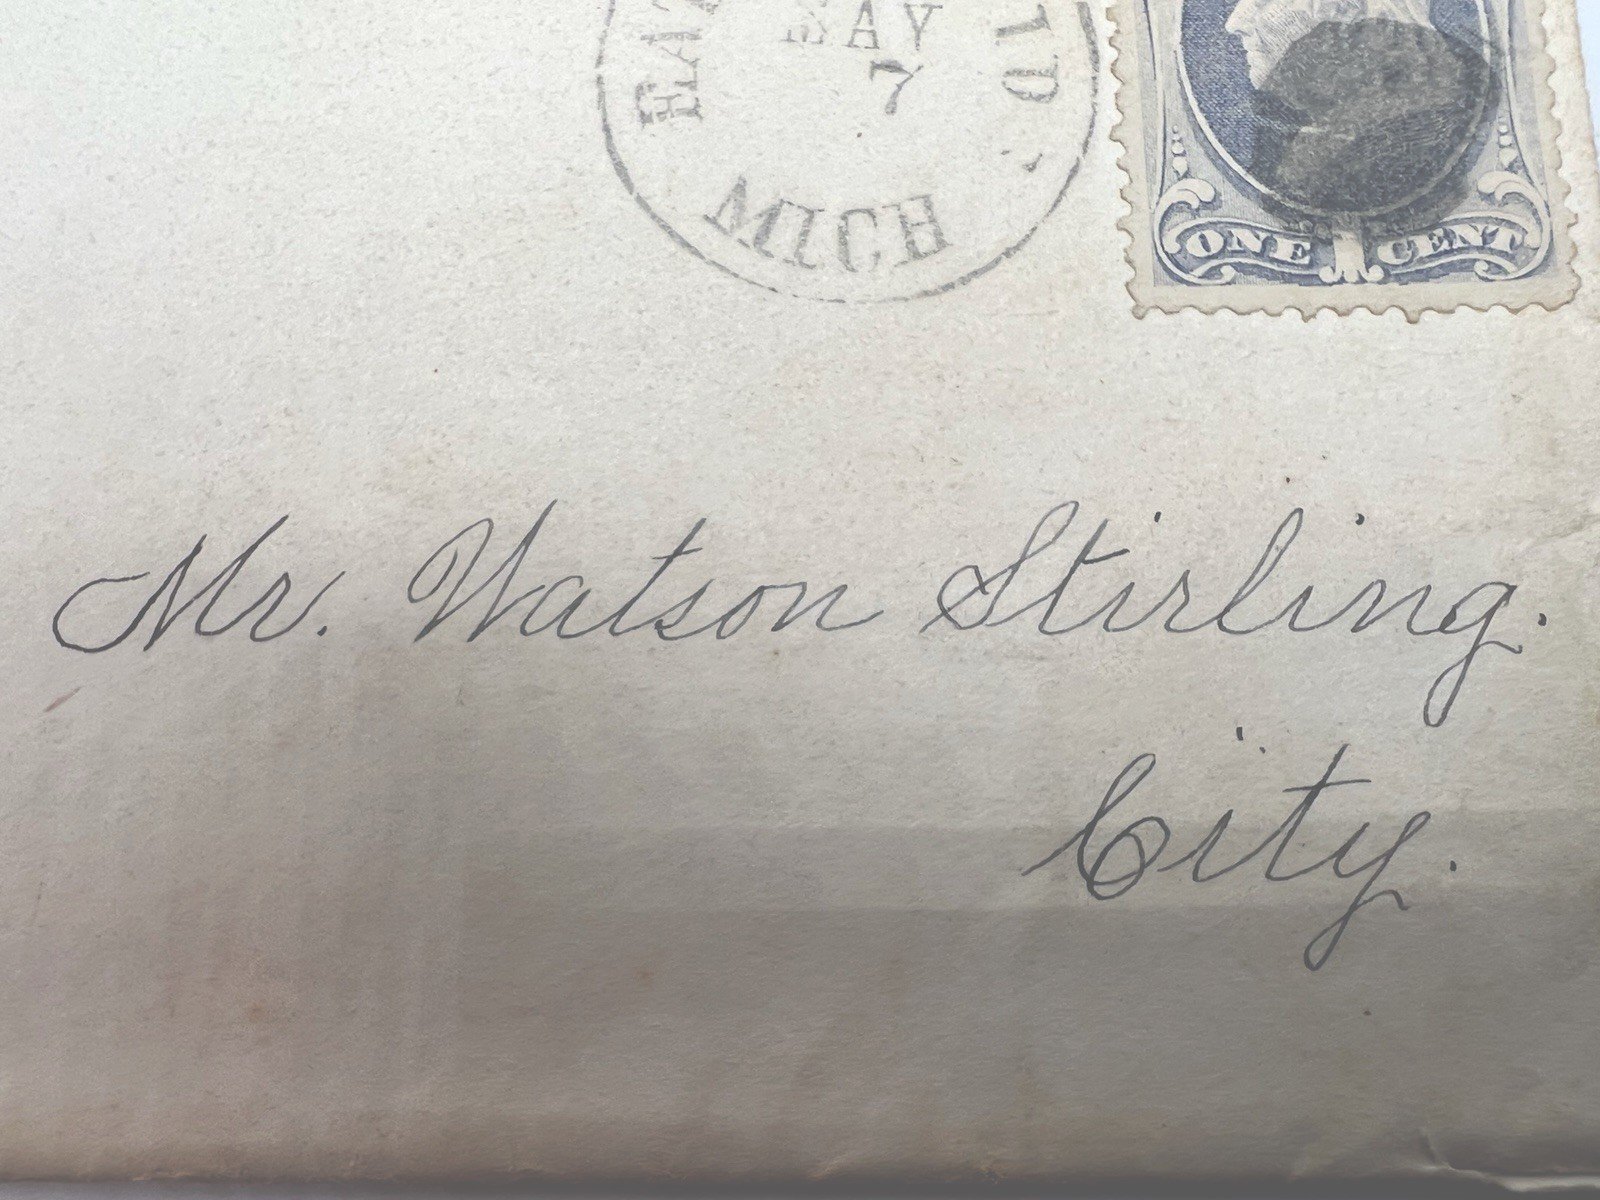 MAY
7
MICH
ONE CENT
Mr. Watson Stirling.
City.